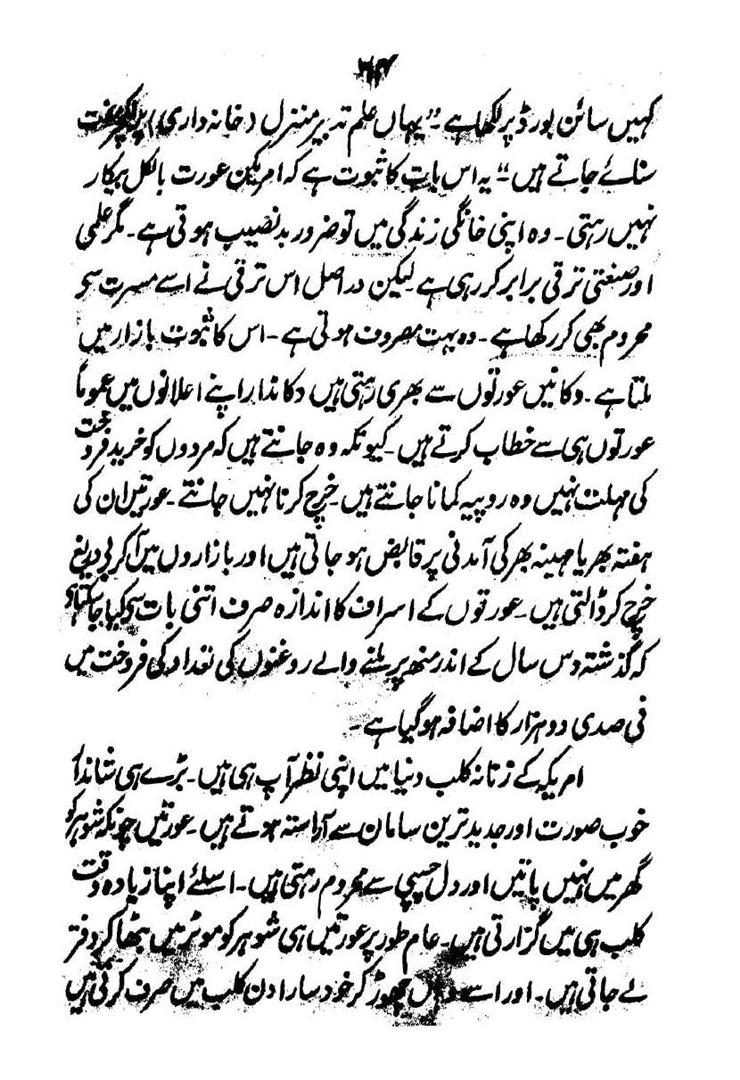 کہیں سائن بورڈ پر لکھا ہے۔ "یہاں علم تدبیر منزل (خانہ داری) پر لکچر مفت
سنائے جاتے ہیں" یہ اس بات کا ثبوت ہے کہ امریکن عورت بالکل بیکار
نہیں رہتی۔ وہ اپنی خانگی زندگی میں تو ضرور بدنصیب ہوتی ہے۔ مگر علمی
اور صنعتی ترقی برابر کر رہی ہے لیکن در اصل اس ترقی نے اسے مسرت سے
محروم بھی کر رکھا ہے۔ وہ بہت مصروف ہوتی ہے۔ اس کا ثبوت بازار میں
ملتا ہے۔ دکانیں عورتوں سے بھری رہتی ہیں دکاندار اپنے اعلانوں میں عموماً
عورتوں ہی سے خطاب کرتے ہیں۔ کیونکہ وہ جانتے ہیں کہ مردوں کو خرید فروخت
کی مہلت نہیں وہ روپیہ کمانا جانتے ہیں۔ خرچ کرنا نہیں جانتے۔ عورتیں ان کی
ہفتہ بھر یا مہینہ بھر کی آمدنی پر قابض ہو جاتی ہیں اور بازاروں میں آکر بے دریغ
خرچ کر ڈالتی ہیں۔ عورتوں کے اسراف کا اندازہ صرف اتنی بات سے کیا جا سکتا ہے
کہ گذشتہ دس سال کے اندر منھ پر ملنے والے روغنوں کی تعداد کی فروخت میں
فی صدی دو ہزار کا اضافہ ہو گیا ہے۔
امریکہ کے زنانہ کلب دنیا میں اپنی نظیر آپ ہی ہیں۔ بڑے ہی شاندار
خوب صورت اور جدید ترین سامان سے آراستہ ہوتے ہیں۔ عورتیں چونکہ شوہر کو
گھر میں نہیں پاتیں اور دل چسپی سے محروم رہتی ہیں۔ اسلئے اپنا زیادہ وقت
کلب ہی میں گزارتی ہیں۔ عام طور پر عورتیں ہی شوہر کو موٹر میں بٹھا کر دفتر
لے جاتی ہیں۔ اور اسے وہاں چھوڑ کر خود سارا دن کلب میں صرف کرتی ہیں